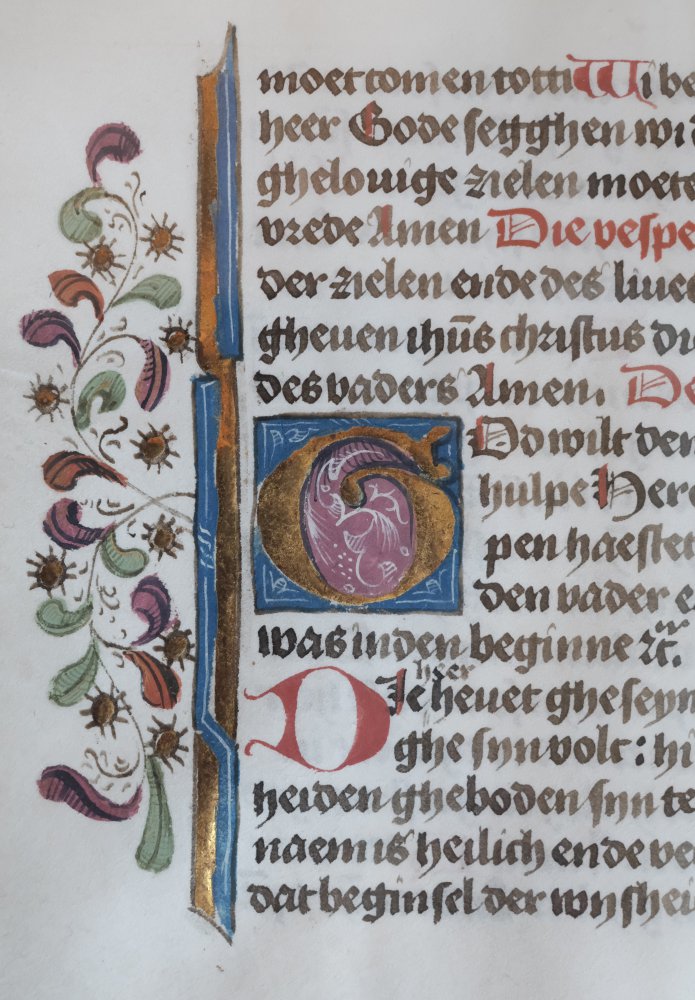 moet comen tot ti Wi be
heer Gode segghen wi
ghelouige zielen moete
vrede Amen Die vespe
der zielen ende des liue
gheuen ihūs christus di
des vaders Amen. De
God wilt den
hulpe Here
pen haestet
den vader e
was inden beginne ⁊c̃.
heer
Die heuet gheseyn
ghe syn volc: hi
heiden gheboden syn te
naem is heilich ende ve
dat beginsel der wyshei